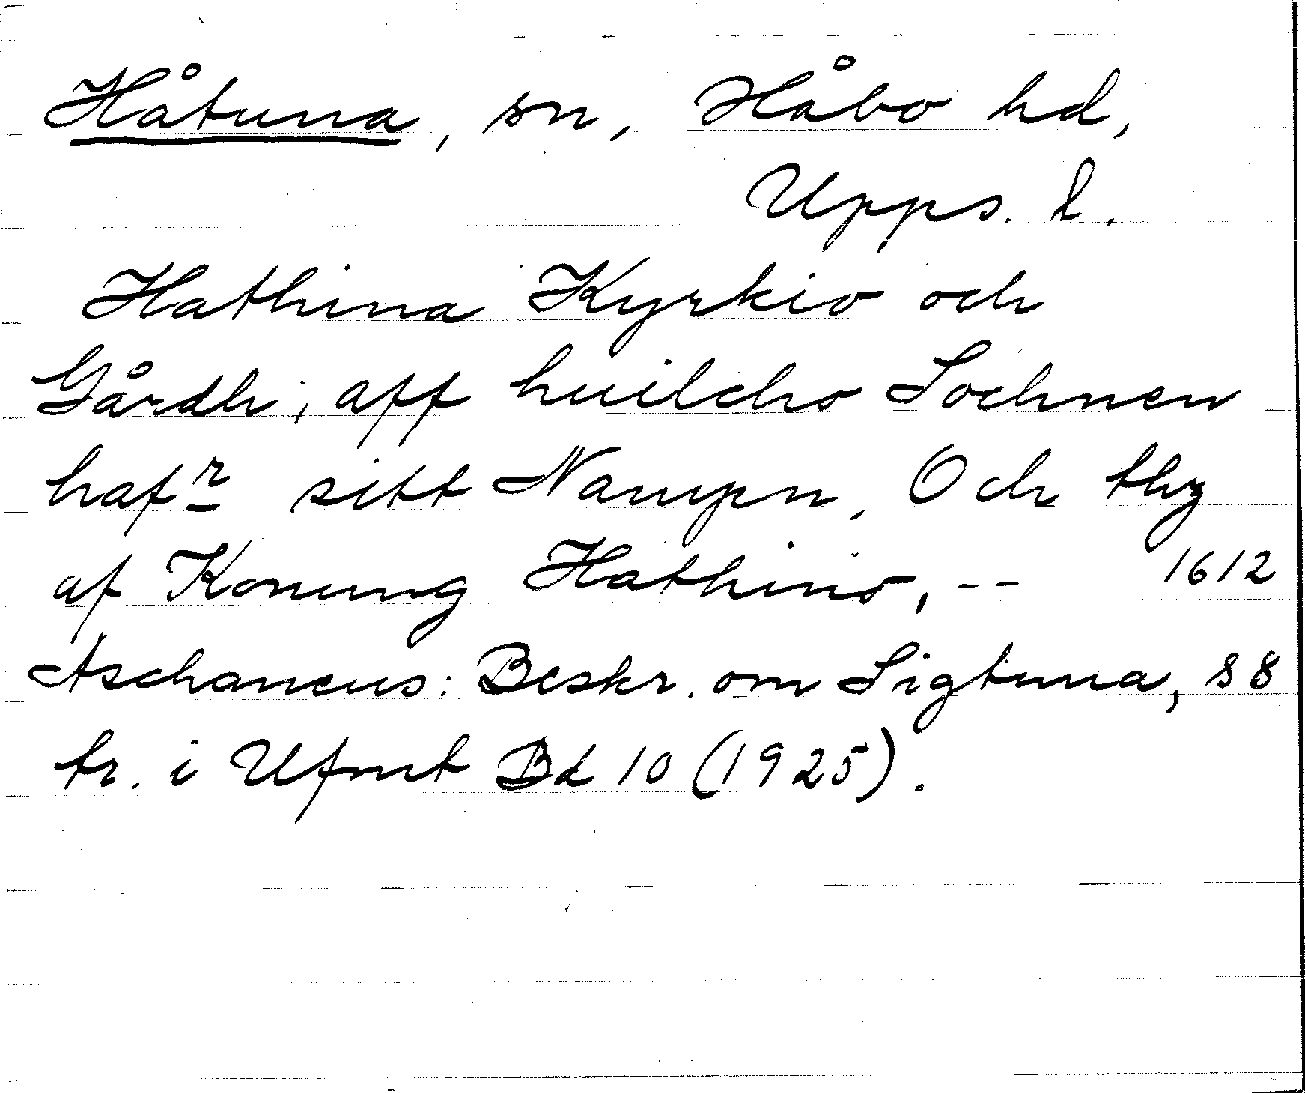 Håtuna, sn, Håbo hd,
Upps. l.
Hathina Kyrkio och
Gårdh, aff huilcho Sochnen
hafr sitt Nampn, Och thy
af Konung Hathino, -- 1612
Aschaneus: Beskr. om Sigtuna, s 8
tr. i Ufmt Bd 10 (1925).